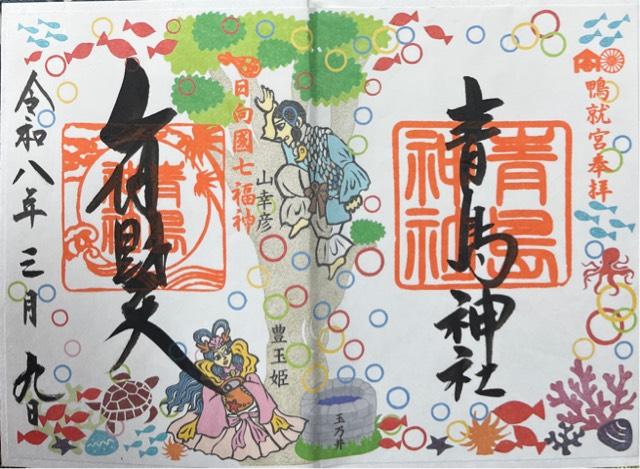 鴨就宮奉拝
青島神社
青島
神社
日向國七福神
山幸彦
豊玉姫
玉乃井
弁財天
青島
神社
令和八年三月九日